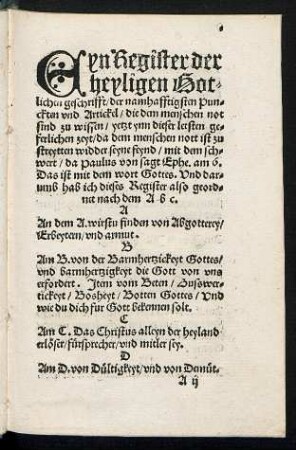 Eyn Register der
heyligen Got-
lichen geschrifft/der namhafftigsten Pun-
ckten vnd Artickel/ die dem menschen not
sind zu wissen/ yetzt ynn dieser letsten ge-
ferlichen zeyt/da dem menschen nott ist zu
streytten widder seyne feynd/ mit dem sch-
wert/ da Paulus von sagt Ephe. am 6.
Das ist mit dem wort Gottes. Vnd dar-
umb hab ich dieses Register also geord-
net nach dem A b c.
A
An dem A. wirstu finden von Abgotterey/
Erbeyten/ vnd armut.
B
Am B. von der Barmhertzickeyt Gottes/
vnd barmhertzigkeyt die Gott von vns
erfordert. Item vom Beten/ Buswer-
tickeyt/ Bosheyt/ Botten Gottes/ Vnd
wie du dich für Gott bekennen solt.
C
Am C. Das Christus alleyn der heyland
erlöser/ fürsprecher/ vnd mitler sey.
D
Am D. von Dültigkeyt/ vnd von Demüt.
A ij